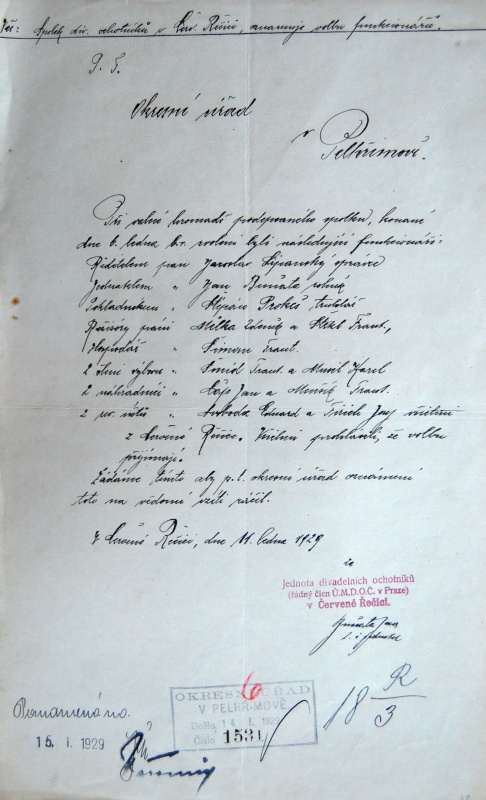 Věc: Spolek div. ochotníků v Červ. Řečici, oznamuje volbu funkcionářů.
P. T.
Okresní úřad
v Pelhřimově.
Při valné hromadě podepsaného spolku, konané
dne 6. ledna t.r. zvoleni byli následující funkcionáři:
Ředitelem pan Jaroslav správce
Jednatelem " Jan rolník
Pokladníkem " Štěpán Prokeš truhlář
páni Milka Zdeněk a Frant.,
Hospodář " Šimon Frant.
2 členi výboru " Šmíd Frant. a Musil Karel
2 náhradníci " Čáp Jan a Frant.
2 rev. účtů " Svoboda Eduard a Josef všichni
z Červené Řečice. Všichni prohlásili, že volbu
přijímají.
Žádáme tímto aby p. t. okresní úřad oznámení
toto na vědomí vzíti ráčil.
V Červené Řečici, dne 11. ledna 1929
za
Jednota divadelních ochotníků
(řádný člen Ú.M.D.O.Č. v Praze)
v Červené Řečici.
Jan
t. č. jednatel
6
OKRESNÍ ÚŘAD
V PELHŘIMOVĚ
Došlo 14. I. 1929
Číslo 1531
18 R/3
Poznamenáno.
15. I. 1929